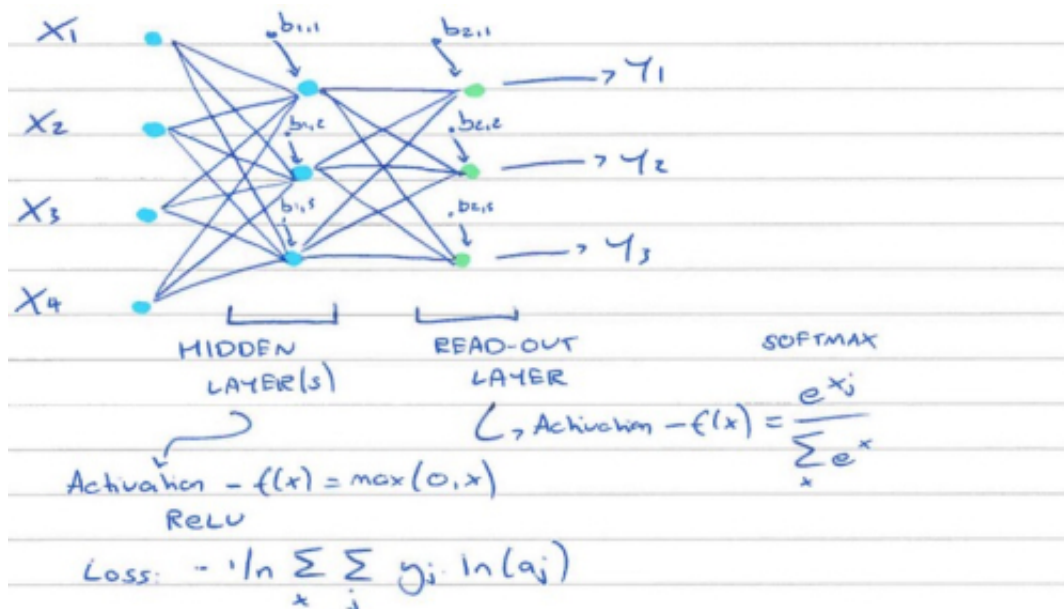 X1
.b1,1
.b2,1
→ Y1
X2
.b1,2
.b2,2
→ Y2
X3
.b1,3
.b2,3
→ Y3
X4
HIDDEN LAYER(S)
READ-OUT LAYER
SOFTMAX
↳ Activation - f(x) = e^xj / Σx e^x
Activation - f(x) = max(0,x)
ReLU
Loss: - 1/n Σx Σj yj ln(aj)